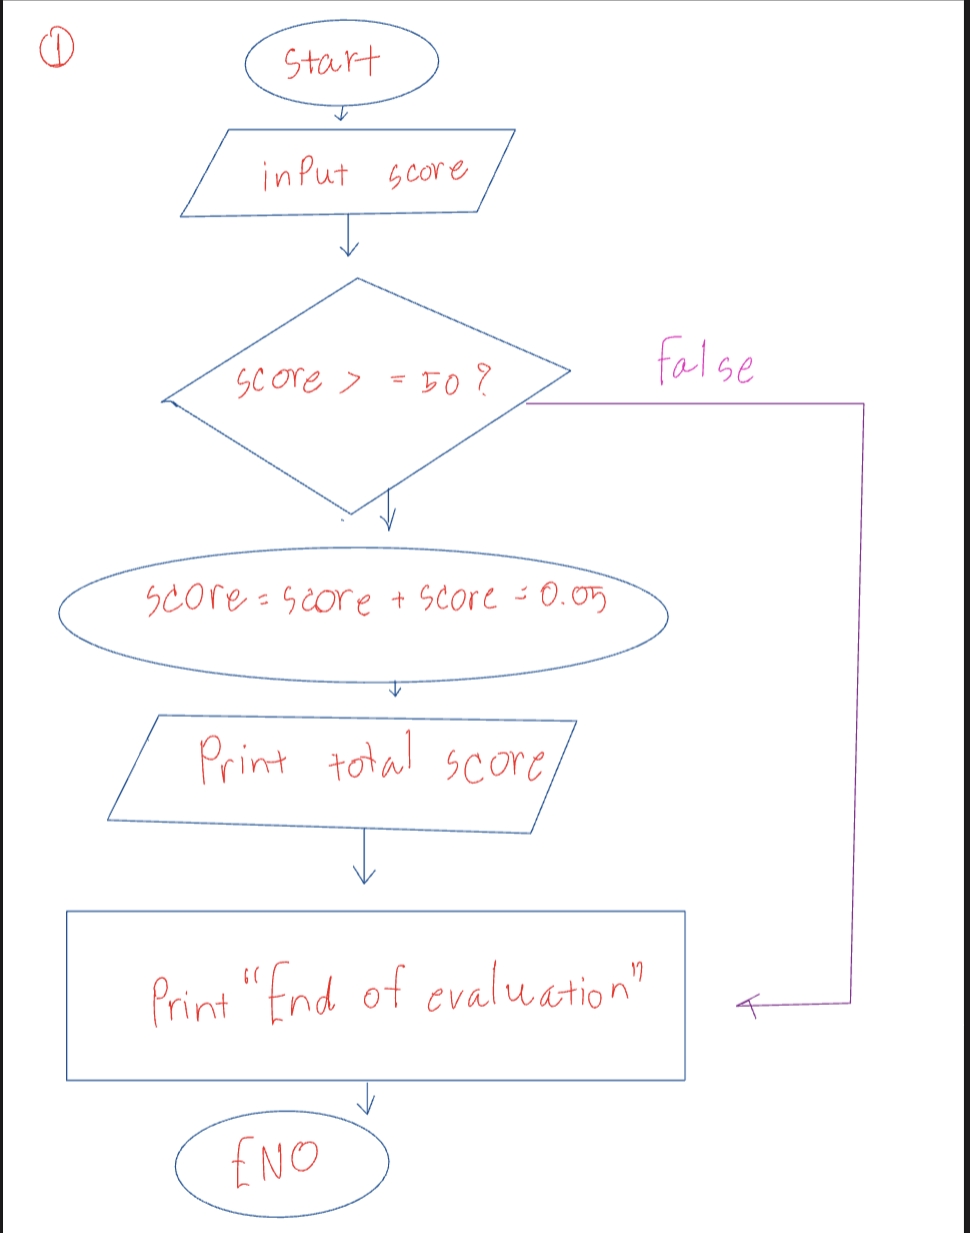 ①
Start
input score
score > = 50 ?
False
score = score + score = 0.05
Print total score
Print "End of evaluation"
END